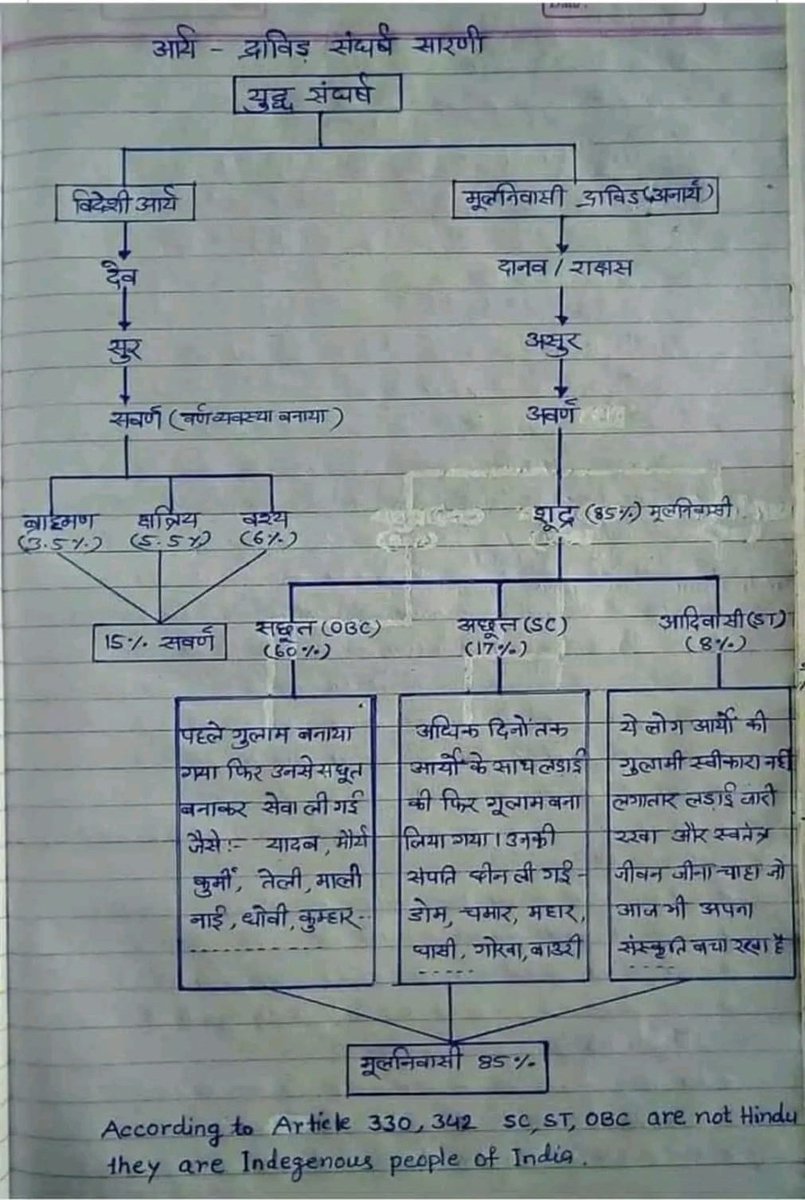 आर्य - द्राविड़ संघर्ष सारणी
युद्ध संघर्ष
विदेशी आर्य
मूलनिवासी द्राविड़(अनार्य)
देव
दानव / राक्षस
सुर
असुर
सवर्ण (वर्णव्यवस्था बनाया)
अवर्ण
ब्राह्मण क्षत्रिय वैश्य
(3.5%) (5.5%) (6%)
शूद्र (85%) मूलनिवासी
15% सवर्ण
सछूत (OBC)
(60%)
अछूत (SC)
(17%)
आदिवासी (ST)
(8%)
पहले गुलाम बनाया
गया फिर उनसे सछूत
बनाकर सेवा ली गई
जैसे:- यादव, मौर्य
कुर्मी, तेली, माली
नाई, धोबी, कुम्हार--
अधिक दिनों तक
आर्यों के साथ लडाई
की फिर गूलाम बना
लिया गया। उनकी
संपति छीन ली गई-
डोम, चमार, महार,
पासी, बाउरी
ये लोग आर्यों की
गुलामी स्वीकारा नहीं
लगातार लड़ाई जारी
रखा और स्वतंत्र
जीवन जीना चाहा जो
आज भी अपना
संस्कृति बचा रखा है
मूलनिवासी 85%
According to Article 330, 342 SC, ST, OBC are not Hindu
they are Indegenous people of India.